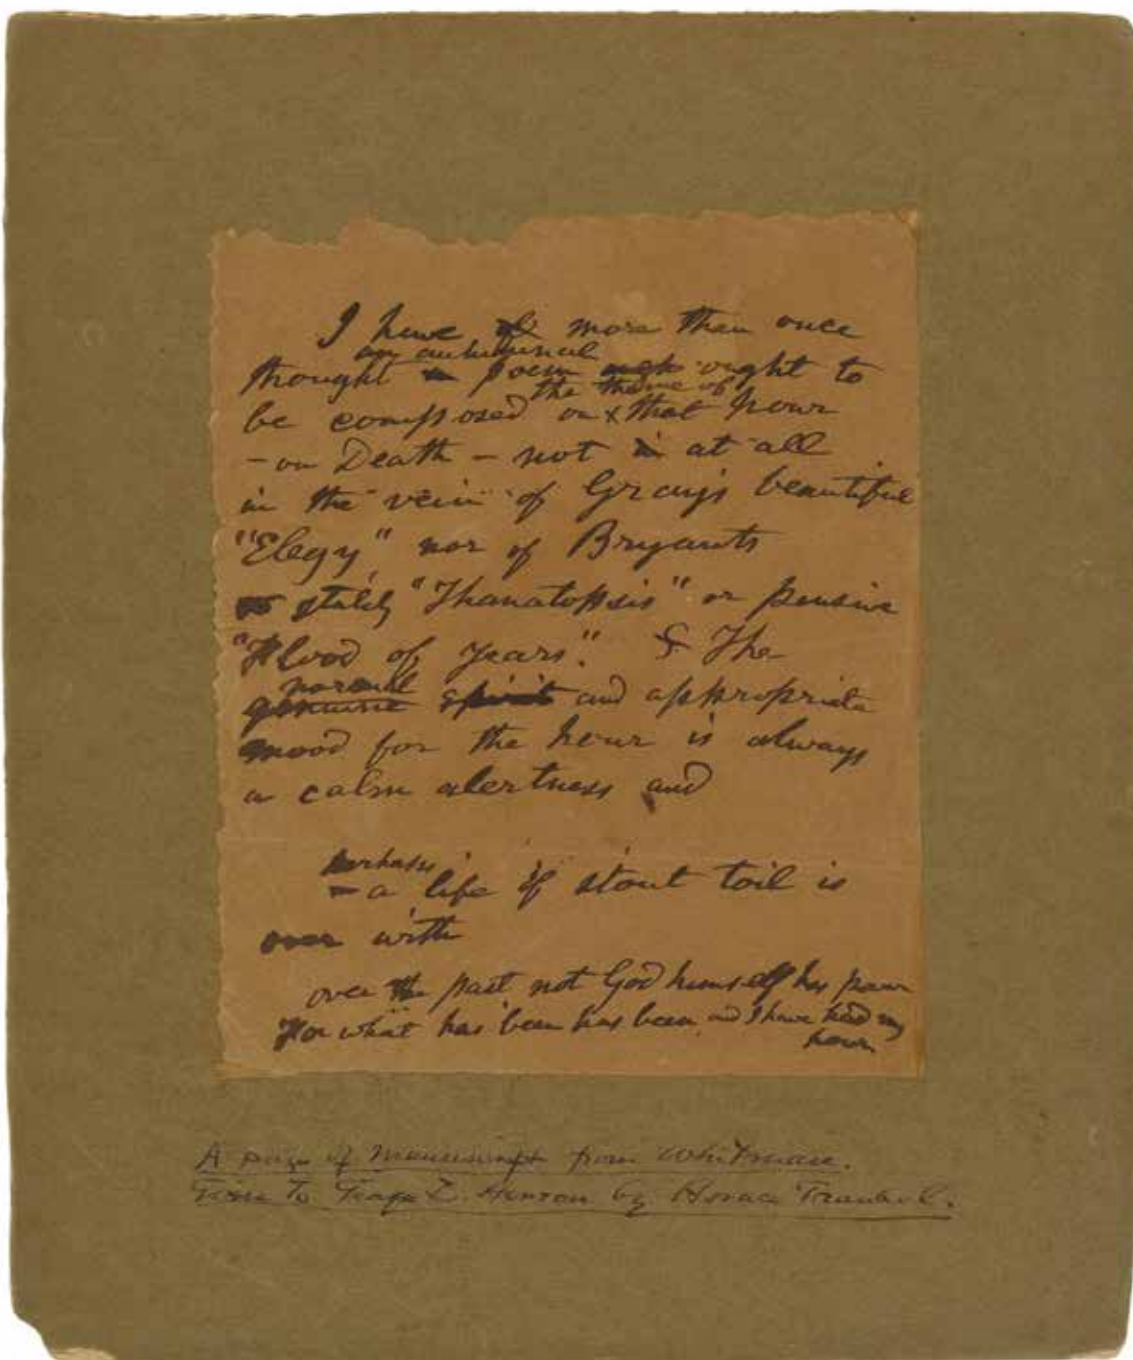 I have of more than once
an autumnal
thought a poem ought to
the theme of
be composed on that hour
– on Death – not in at all
in the vein of Gray's beautiful
"Elegy," nor of Bryants
stately "Thanatopsis" or pensive
"Flood of Years." & The
normal
genuine spirit and appropriate
mood for the hour is always
a calm alertness and
perhaps
– a life of stout toil is
over with
over the past not God himself has power
For what has been has been and I have had my
hour
A page of manuscript from Whitman.
to by Horace Traubel.